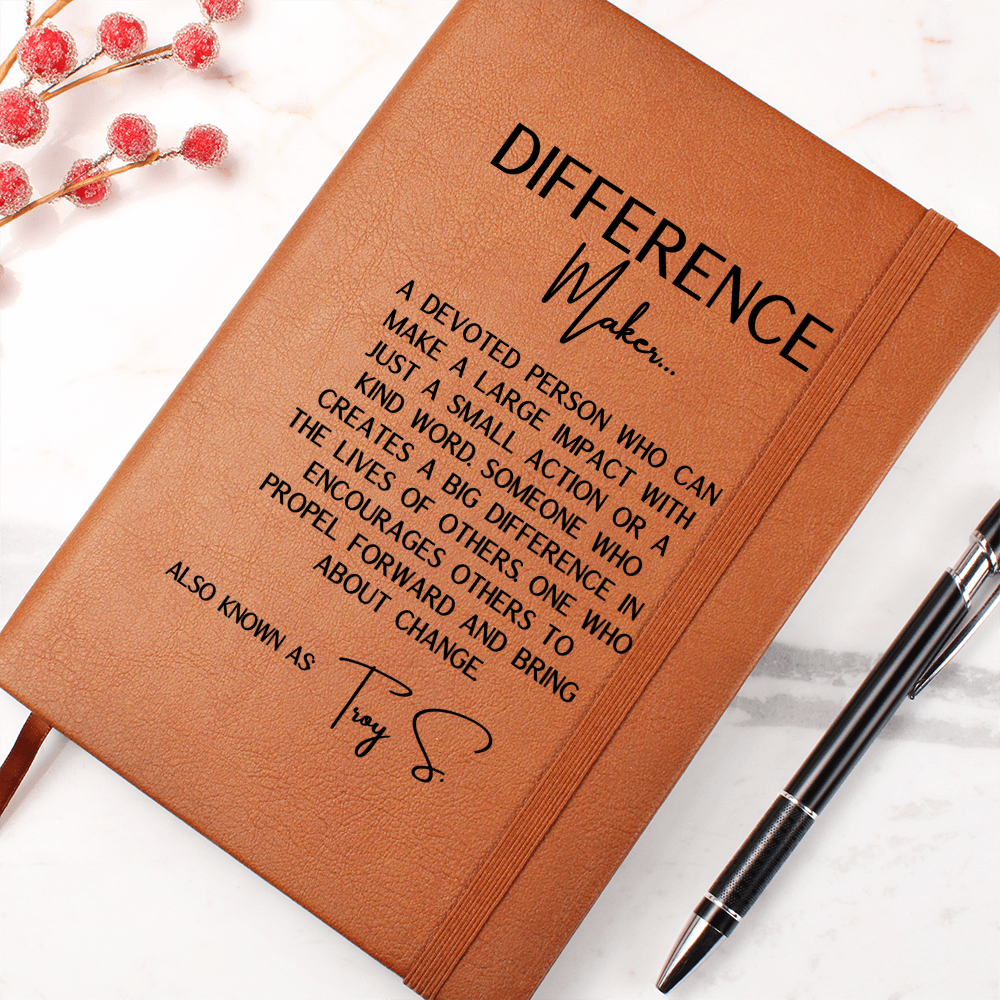 DIFFERENCE
Maker...
A DEVOTED PERSON WHO CAN
MAKE A LARGE IMPACT WITH
JUST A SMALL ACTION OR A
KIND WORD. SOMEONE WHO
CREATES A BIG DIFFERENCE IN
THE LIVES OF OTHERS. ONE WHO
ENCOURAGES OTHERS TO
PROPEL FORWARD AND BRING
ABOUT CHANGE
ALSO KNOWN AS
Troy S.